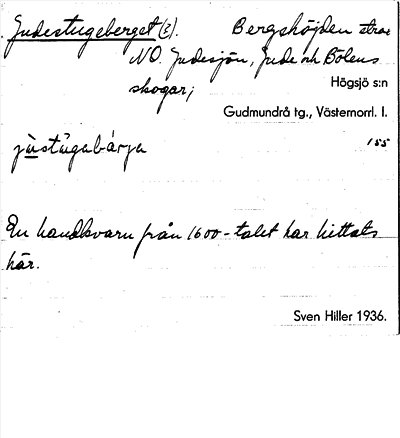 Judestugeberget (3). Bergshöjden strax
NO. Judesjön, Jude och Bölens
skogar;
Högsjö s:n
Gudmundrå tg., Västernorrl. l.
155
jùstùgabárja
En handkvarn från 1600-talet har hittats
här.
Sven Hiller 1936.